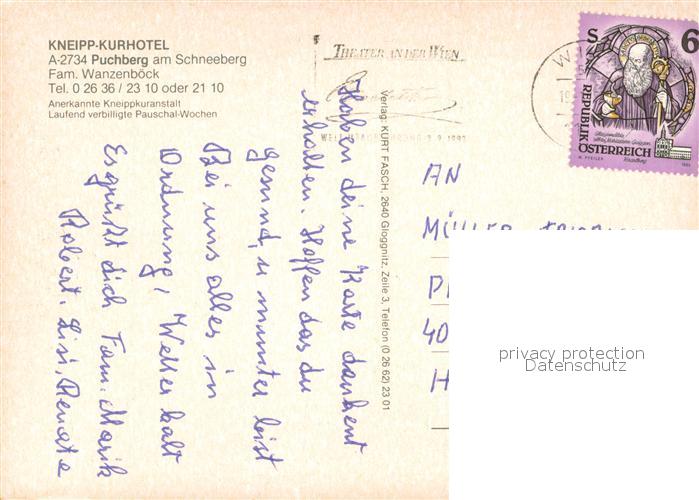 KNEIPP-KURHOTEL
A-2734 Puchberg am Schneeberg
Fam. Wanzenböck
Tel. 0 26 36 / 23 10 oder 21 10
Anerkannte Kneippkuranstalt
Laufend verbilligte Pauschal-Wochen
THEATER IN DER WIEN
Haben deine Karte dankent
erhalten. Hoffen das du
gesund, u munter bist
Bei uns alles in
Ordnung, Wetter kalt
Es grüßt dich Fam. Marik
Robert. Lisi, Renate
Verlag: KURT FASCH, 2640 Gloggnitz, Zeile 3, Telefon (0 26 62) 23 01
S 6
REPUBLIK
ÖSTERREICH
AN
MÜLLER
40
H
privacy protection
Datenschutz